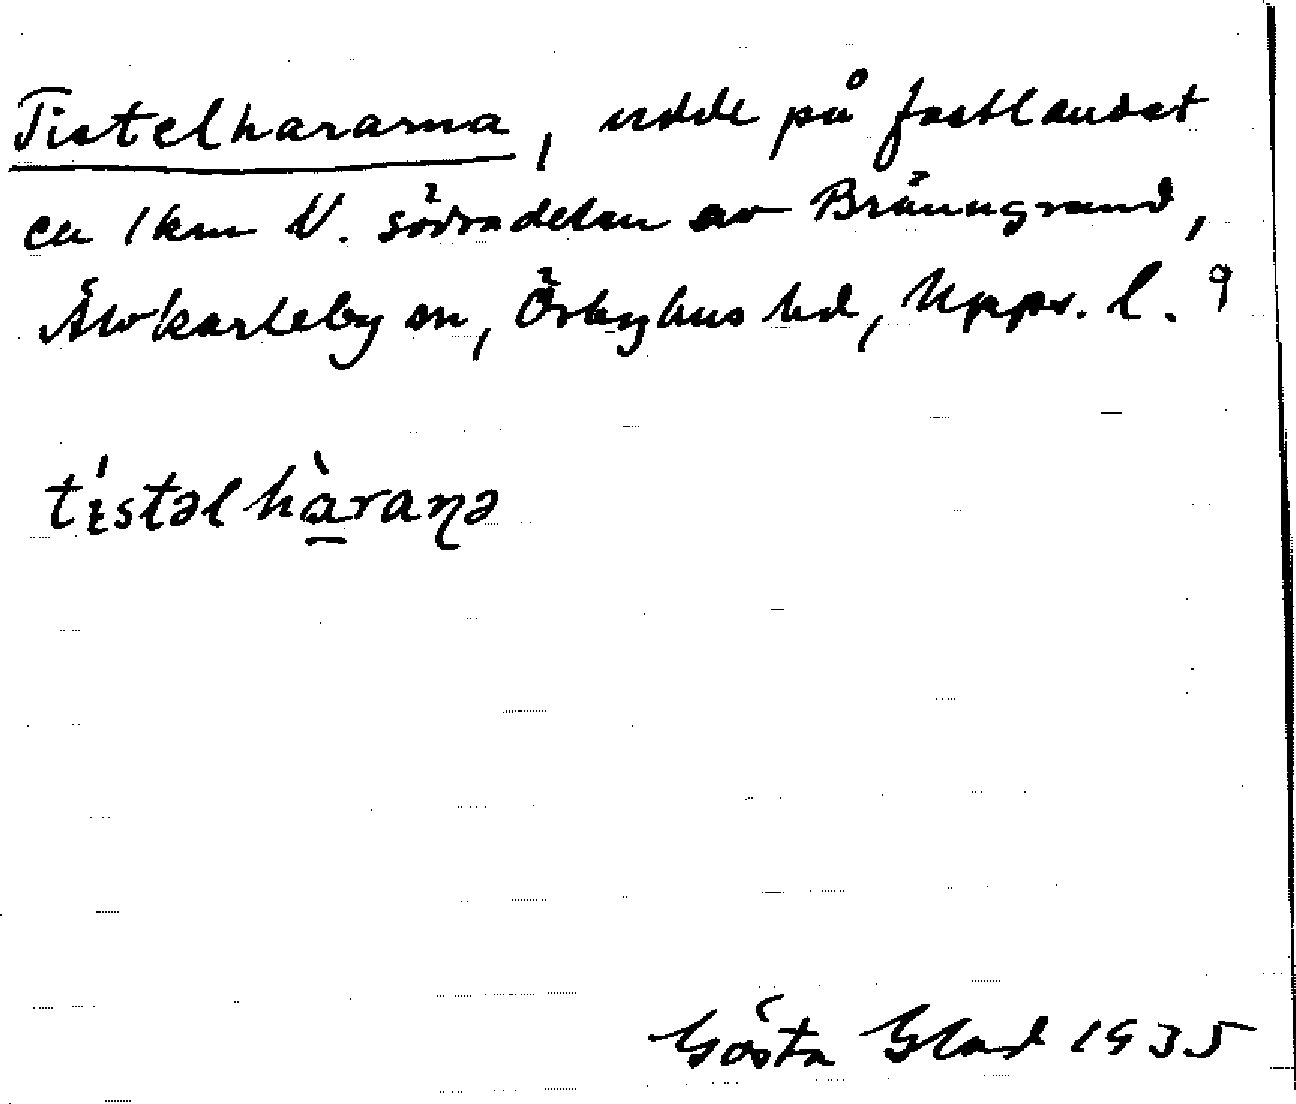 Tistelhararna, udde på fastlandet
ca 1 km V. södra delen av Bränngrund,
Älvkarleby sn, Örbyhus hd, Upps. l.
tistəlharaɳə
Gösta Blad 1935